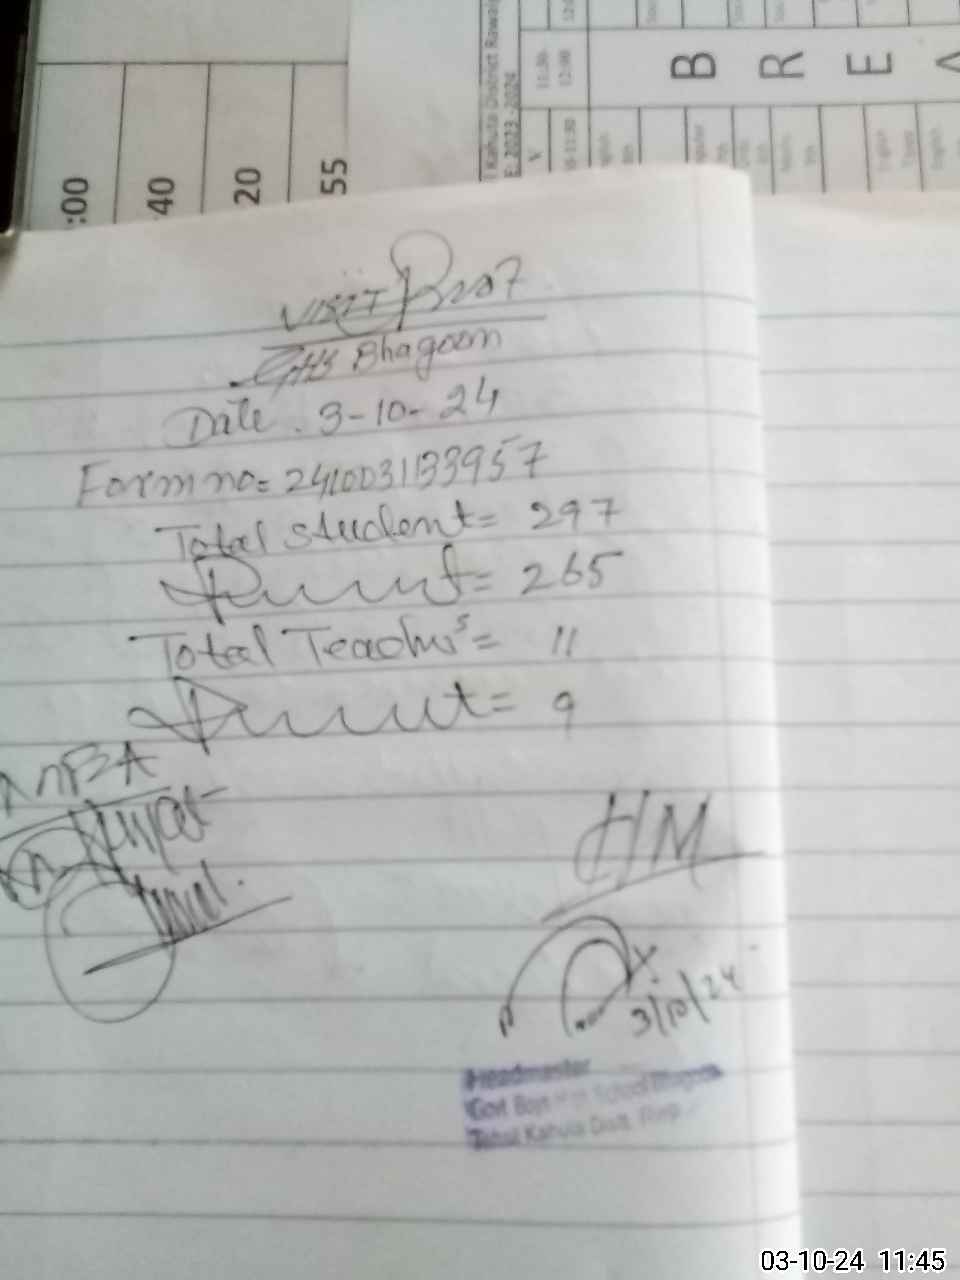 :00
40
20
55
Kahuta District Rawal
E 2023 -2024
V
11:30-
12:00
B R E A
VISIT Proof
GHS Bhagoon
Date . 3-10-24
Form no= 241003133957
Total student= 297
Present= 265
Total Teachers= 11
Present= 9
HM
3/10/24
Headmaster
Govt Boys High School Bhagoon
Tehsil Kahuta Distt. Rwp
03-10-24 11:45